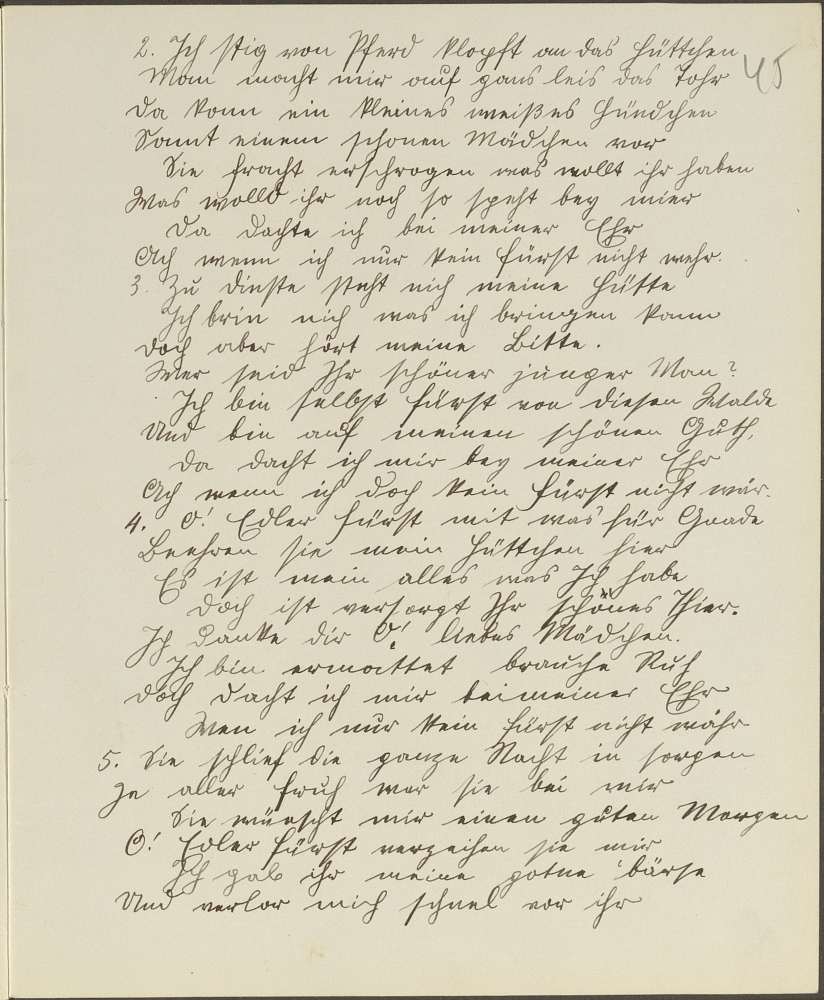 45
2. Ich stig von Pferd klopft an das Hüttchen
Man macht mir auf gans leis das Tohr
Da kom ein kleines weißes Hündchen
Samt einem schonen Mädchen vor
Sie fracht erschrogen was wollt ihr haben
Was wolld ihr noch so speht bey mier
Da dachte ich bei meiner Ehr
Ach wenn ich nur kein Fürst nicht mehr.
3. Zu dinste steht nich meine Hütte
Ich brin nich was ich bringen kann
Doch aber hört meine Bitte.
Wer seid Ihr schöner junger Man?
Ich bin selbst Fürst von diesen Walde
Und bin auf meinen schönen Guth,
Da dacht ich mir bey meiner Ehr
Ach wenn ich doch kein Fürst nicht wär.
4. O! Edler Fürst mit was für Gnade
Beehren sie mein Hüttchen hier
Es ist mein alles was Ich habe
Doch ist versorgt Ihr schönes Thier.
Ich Danke dir O! liebes Mädchen.
Ich bin ermattet brauche Ruh
Doch dacht ich mir bei meiner Ehr
Wen ich nur kein Fürst nicht währ
5. Sie schlief die ganze Nacht in sorgen
Ze aller fruh war sie bei mir
Sie wünscht mir einen guten Morgen
O! Edler Fürst verzeihen sie mir
Ich gab ihr meine börse
Und verlor mich schnel vor ihr